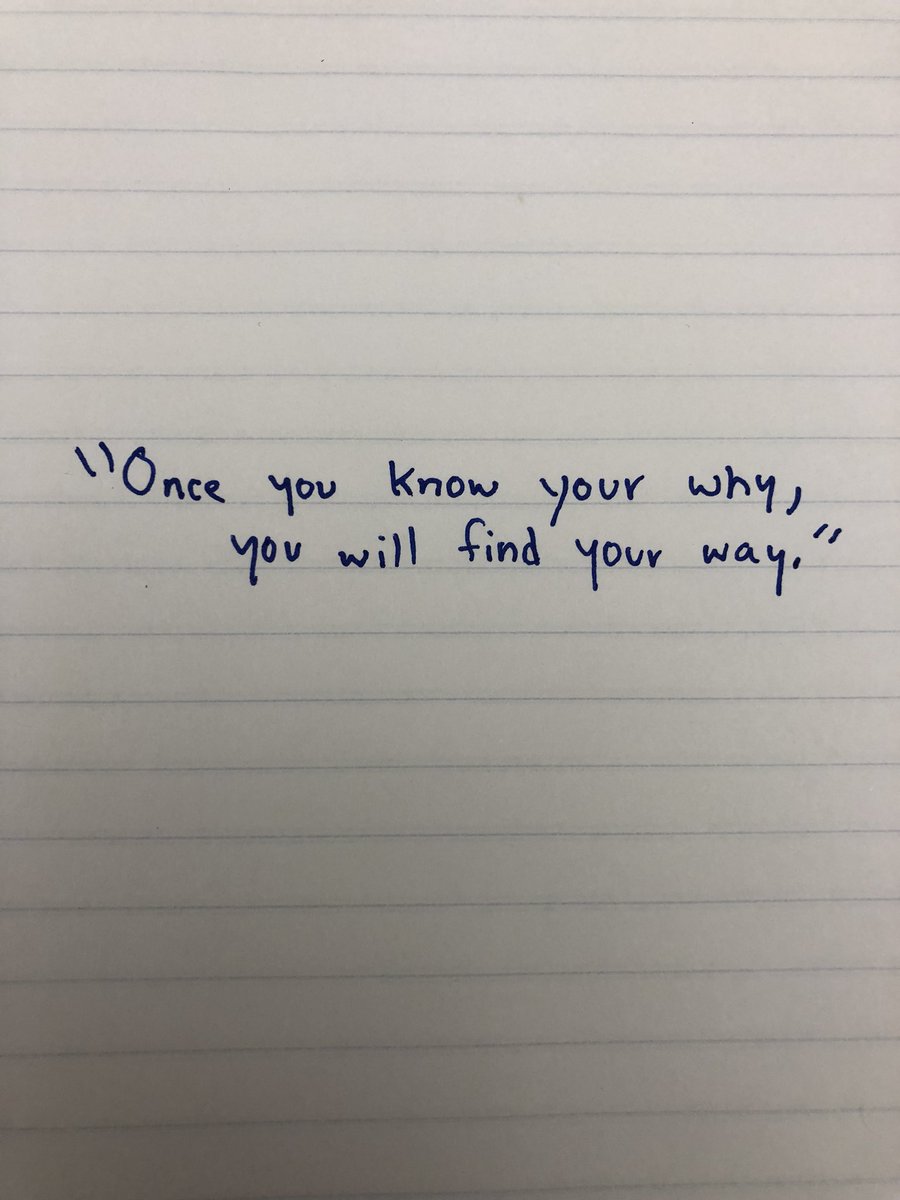 "Once you know your why,
you will find your way."